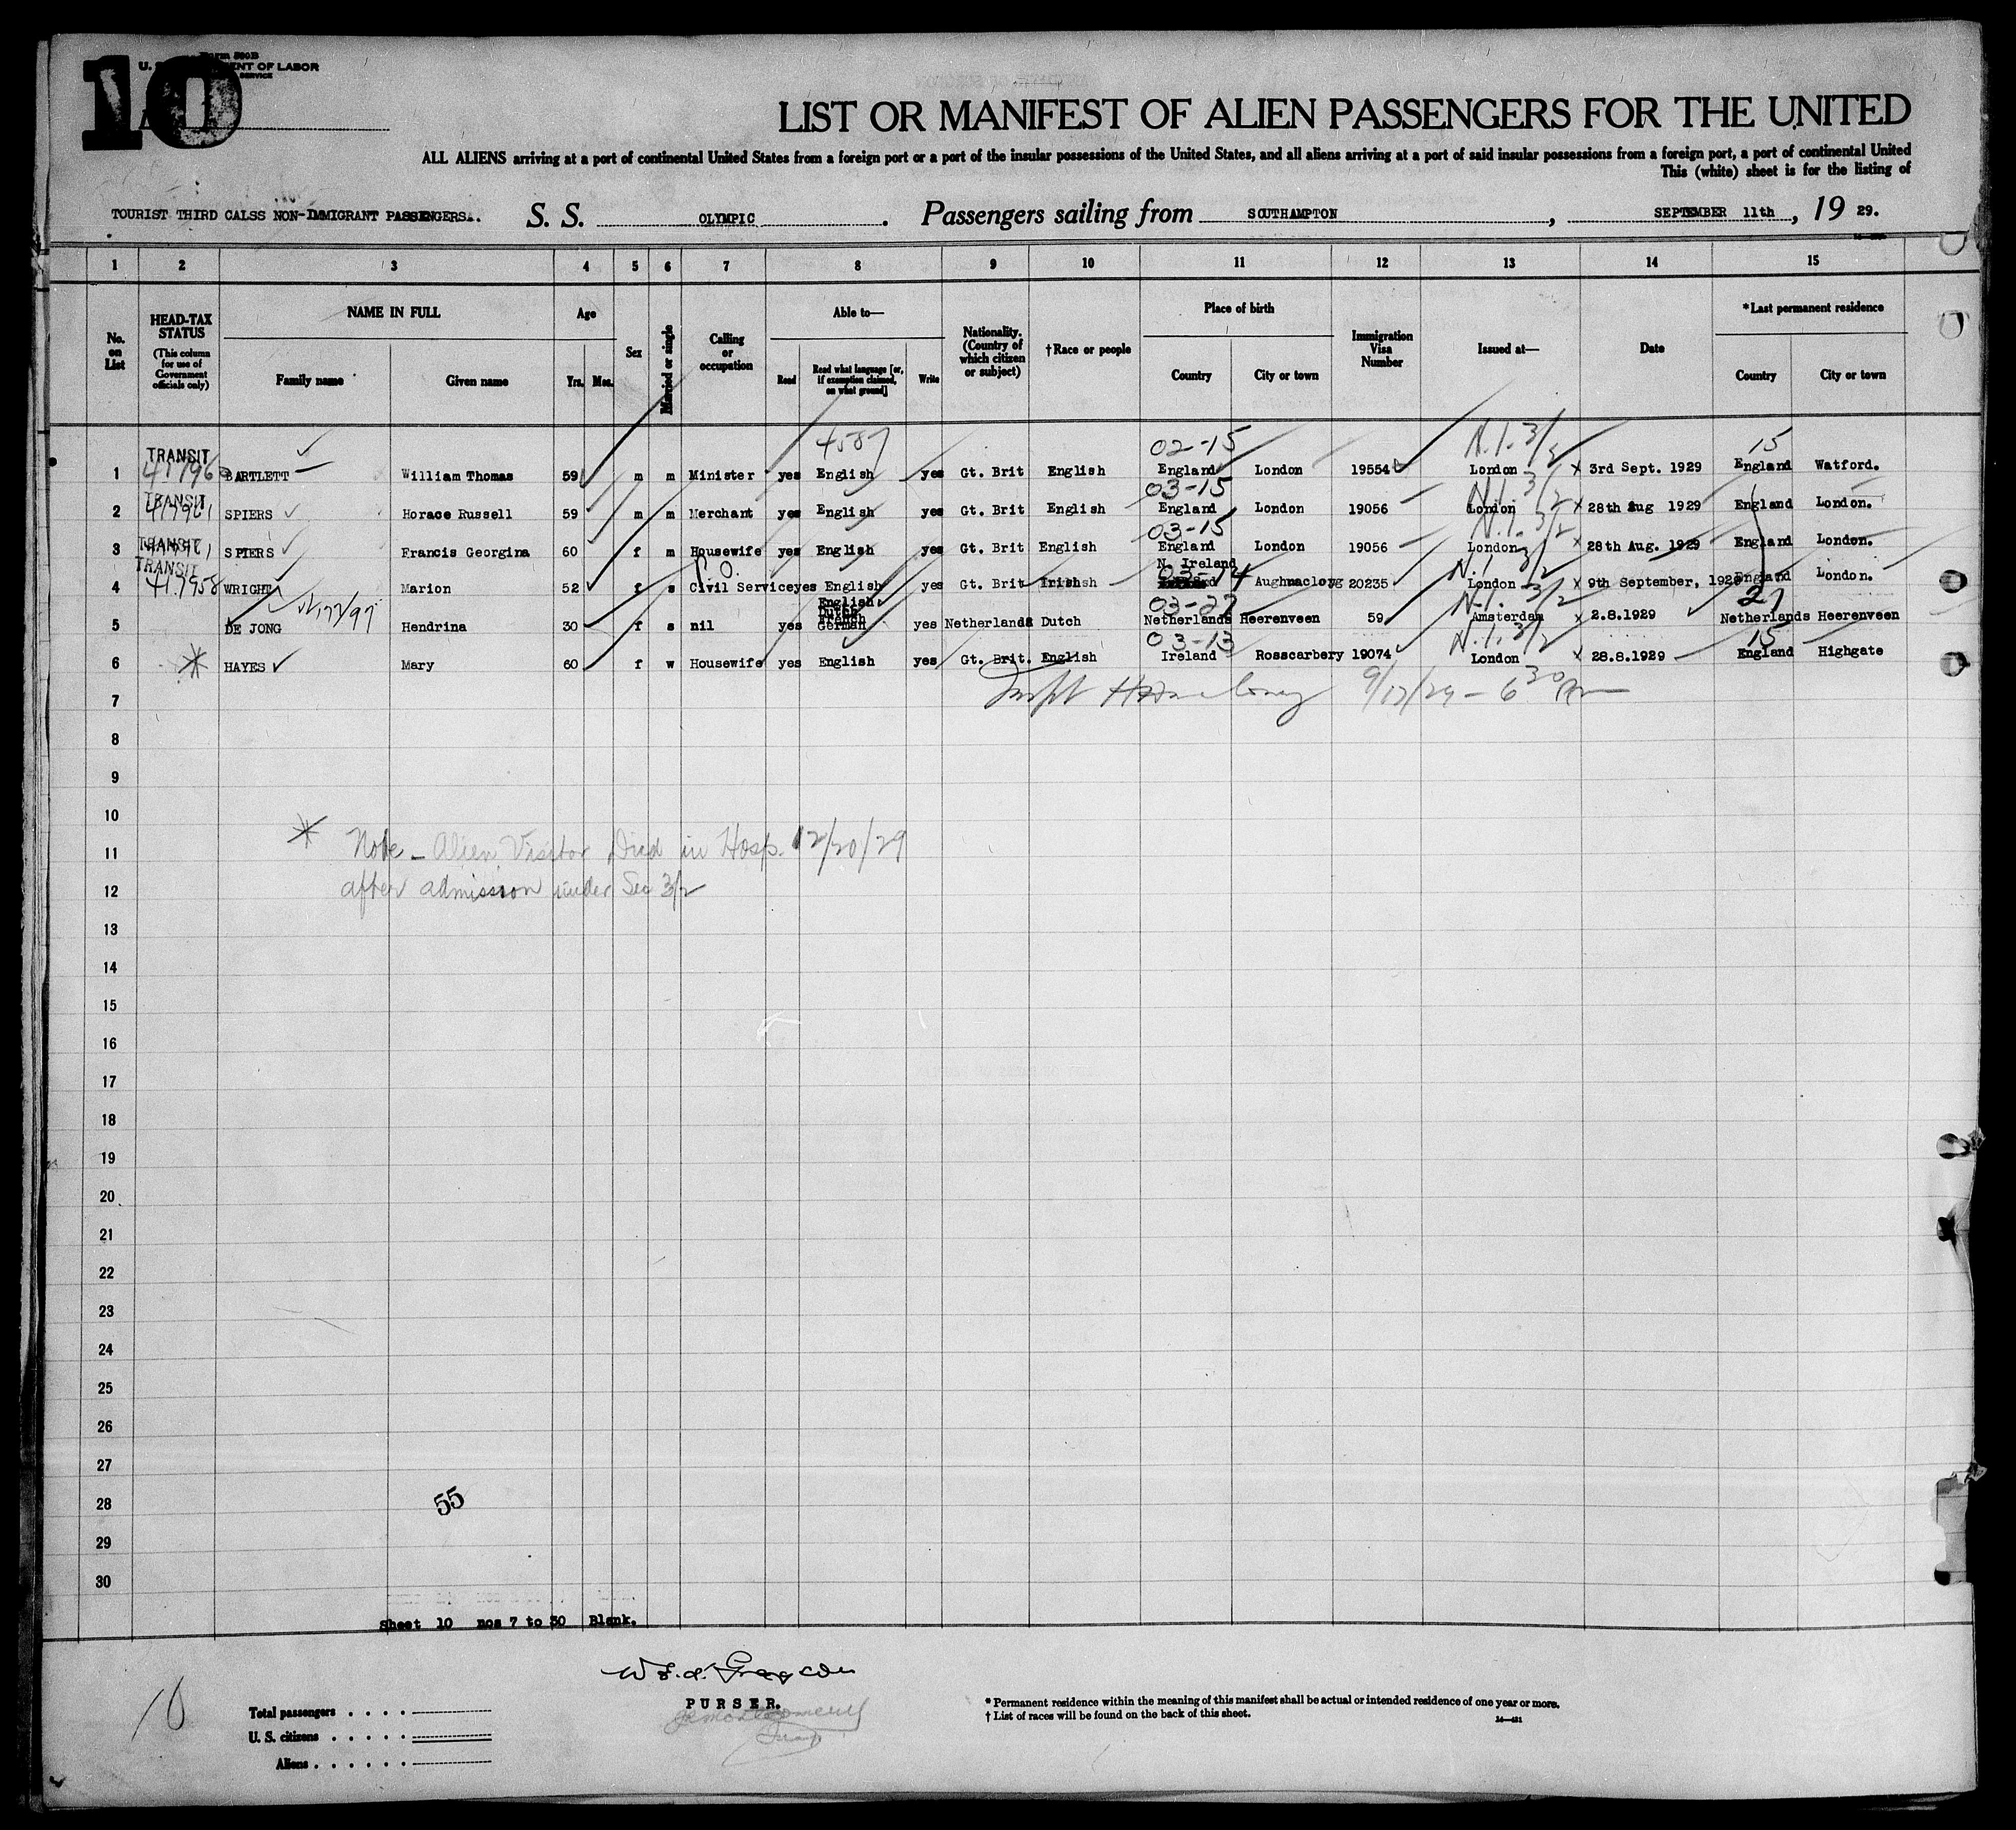 10
Form 500B
U. S. DEPARTMENT OF LABOR
SERVICE
LIST OR MANIFEST OF ALIEN PASSENGERS FOR THE UNITED
ALL ALIENS arriving at a port of continental United States from a foreign port or a port of the insular possessions of the United States, and all aliens arriving at a port of said insular possessions from a foreign port, a port of continental United
This (white) sheet is for the listing of
TOURIST THIRD CALSS NON-IMMIGRANT PASSENGERS.. S. S. OLYMPIC. Passengers sailing from SOUTHAMPTON, SEPTEMBER 11th, 19 29.
1 2 3 4 5 6 7 8 9 10 11 12 13 14 15
No. on List
HEAD-TAX STATUS (This column for use of Government officials only)
NAME IN FULL
Family name Given name
Age
Yrs. Mos.
Sex
Married or single
Calling or occupation
Able to—
Read
Read what language [or, if exemption claimed, on what ground]
Write
Nationality. (Country of which citizen or subject)
†Race or people
Place of birth
Country City or town
Immigration Visa Number
Issued at—
Date
*Last permanent residence
Country City or town
TRANSIT 4587 02-15 N.I. 3/2 15
1 BARTLETT William Thomas 59 m m Minister yes English yes Gt. Brit English England London 19554 London x 3rd Sept. 1929 England Watford.
TRANSIT 03-15 N.I. 3/2
2 SPIERS Horace Russell 59 m m Merchant yes English yes Gt. Brit English England London 19056 London x 28th Aug 1929 England London.
TRANSIT 03-15 N.I. 3/2
3 SPIERS Francis Georgina 60 f m Housewife yes English yes Gt. Brit English England London 19056 London x 28th Aug. 1929 England London.
TRANSIT P.O. N. Ireland 03-14 N.I. 3/2
4 417958 WRIGHT Marion 52 f s Civil Service yes English yes Gt. Brit Irish Aughnacloyg 20235 London x 9th September, 1929 England London.
English Dutch French 03-27 N.I. 3/2 27
5 DE JONG Hendrina 30 f s nil yes German yes Netherlands Dutch Netherlands Heerenveen 59 Amsterdam x 2.8.1929 Netherlands Heerenveen
03-13 N.I. 3/2 15
6 * HAYES Mary 60 f w Housewife yes English yes Gt. Brit. English Ireland Rosscarbery 19074 London x 28.8.1929 England Highgate
7 9/17/29 - 6 30
8
9
10
11 * Note - Alien Visitor Died in Hosp. 12/20/29
12 after admission under Sec 3/2
13
14
15
16
17
18
19
20
21
22
23
24
25
26
27
28 55
29
30
Sheet 10 nos 7 to 30 Blank.
PURSER.
10
Total passengers
U. S. citizens
Aliens
* Permanent residence within the meaning of this manifest shall be actual or intended residence of one year or more.
† List of races will be found on the back of this sheet.